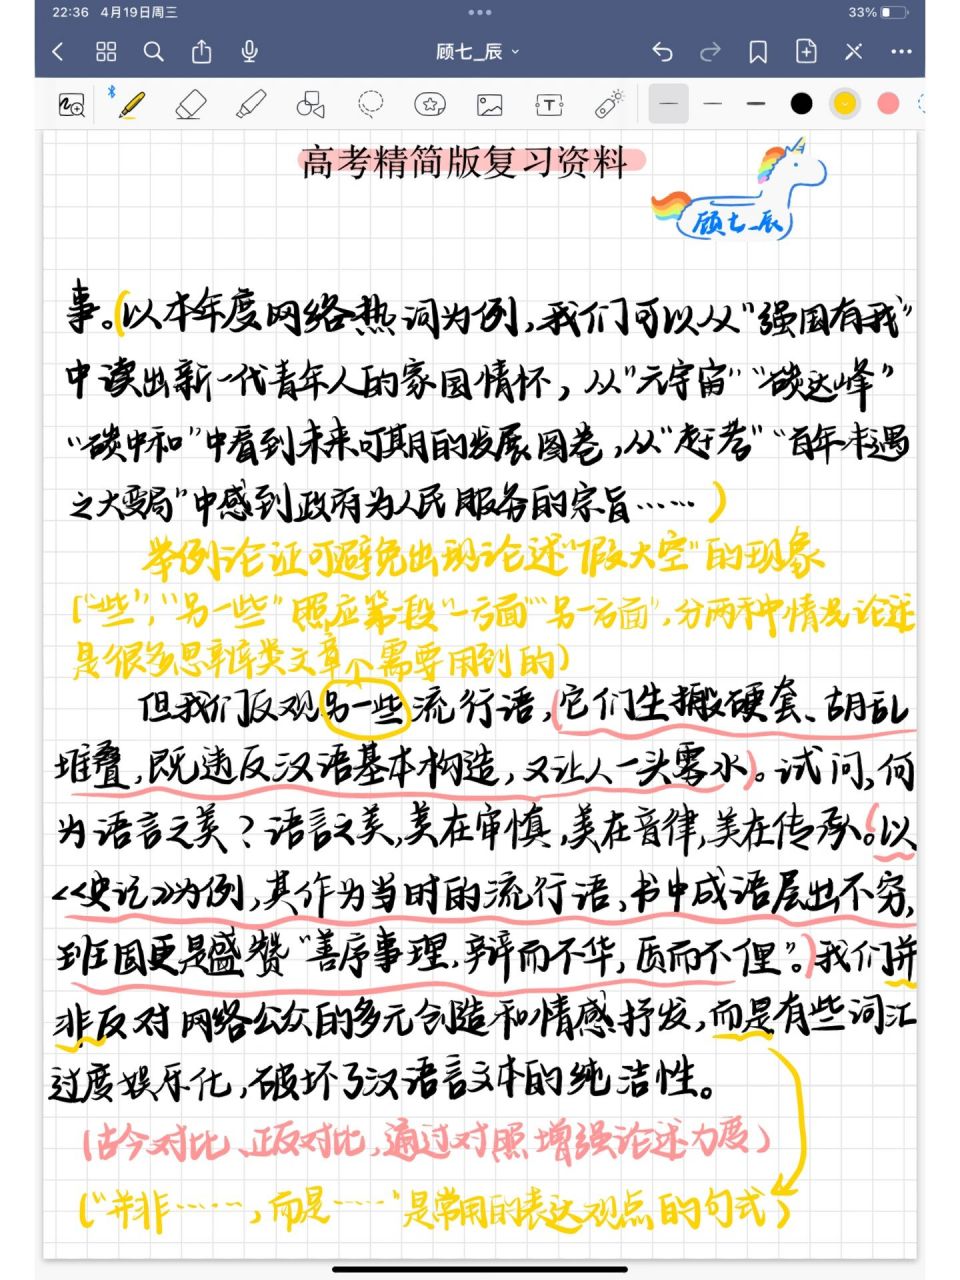 22:36 4月19日周三
33%
顾七_辰
T
高考精简版复习资料
顾七_辰
事。(以本年度网络热词为例,我们可以从“强国有我”
中读出新一代青年人的家国情怀,从“元宇宙”“碳达峰”
“碳中和”中看到未来可期的发展图卷,从“赶考”“百年未遇
之大变局”中感到政府为人民服务的宗旨……)
举例论证可避免出现论述“假大空”的现象
(“一些”,“另一些”照应第一段“一方面”“另一方面”,分两种情况论述
是很多思辨类文章个需要用到的)
但我们反观另一些流行语,(它们生搬硬套、胡乱
堆叠,既违反汉语基本构造,又让人一头雾水)。试问,何
为语言之美?语言之美,美在审慎,美在音律,美在传承。(以
《史记》为例,其作为当时的流行语,书中成语层出不穷,
班固更是盛赞“善序事理,辩而不华,质而不俚”。)我们并
非反对网络公众的多元创造和情感抒发,而是有些词汇
过度娱乐化,破坏了汉语言文本的纯洁性。
(古今对比、正反对比,通过对照增强论述力度)
(“并非……,而是……”是常用的表达观点的句式)